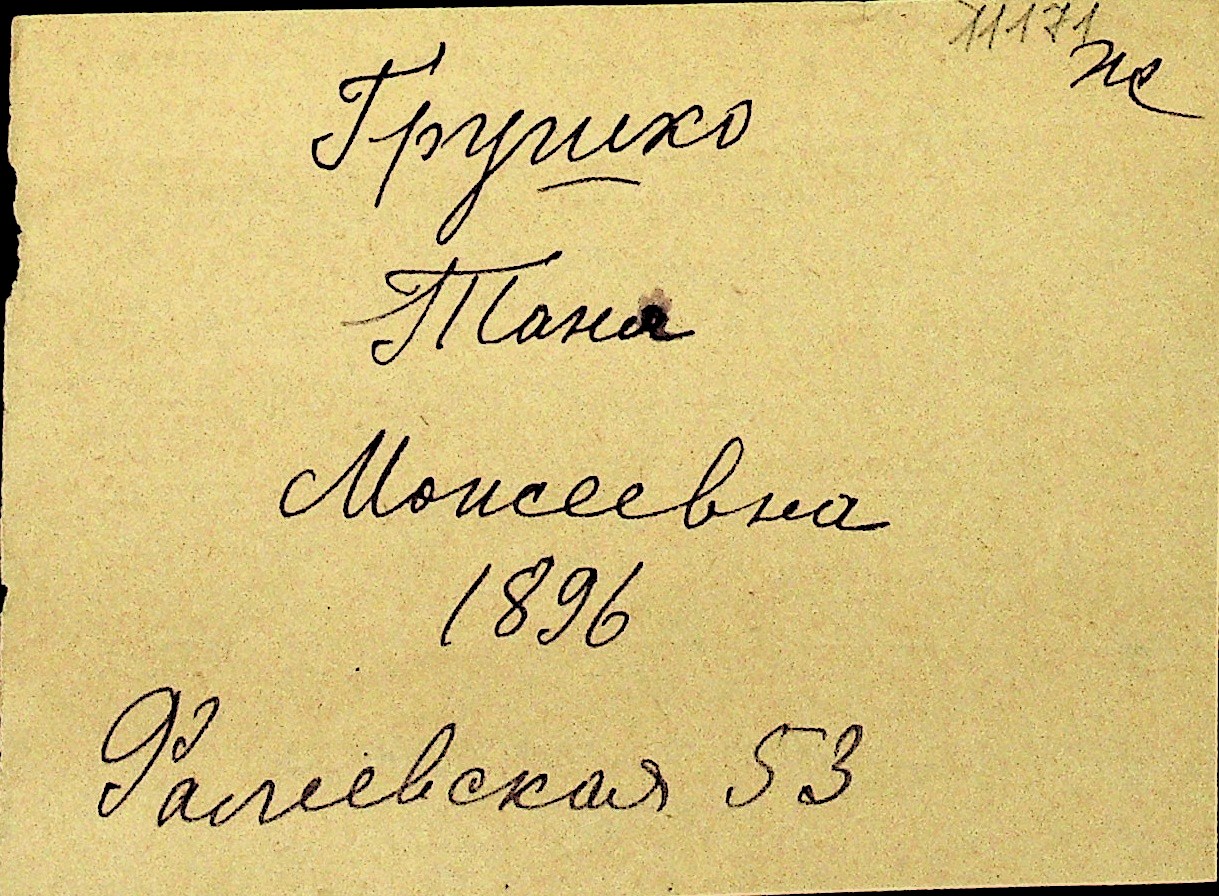 11171
Грушко
Таня
Моисеевна
1896
Фалеевская 53